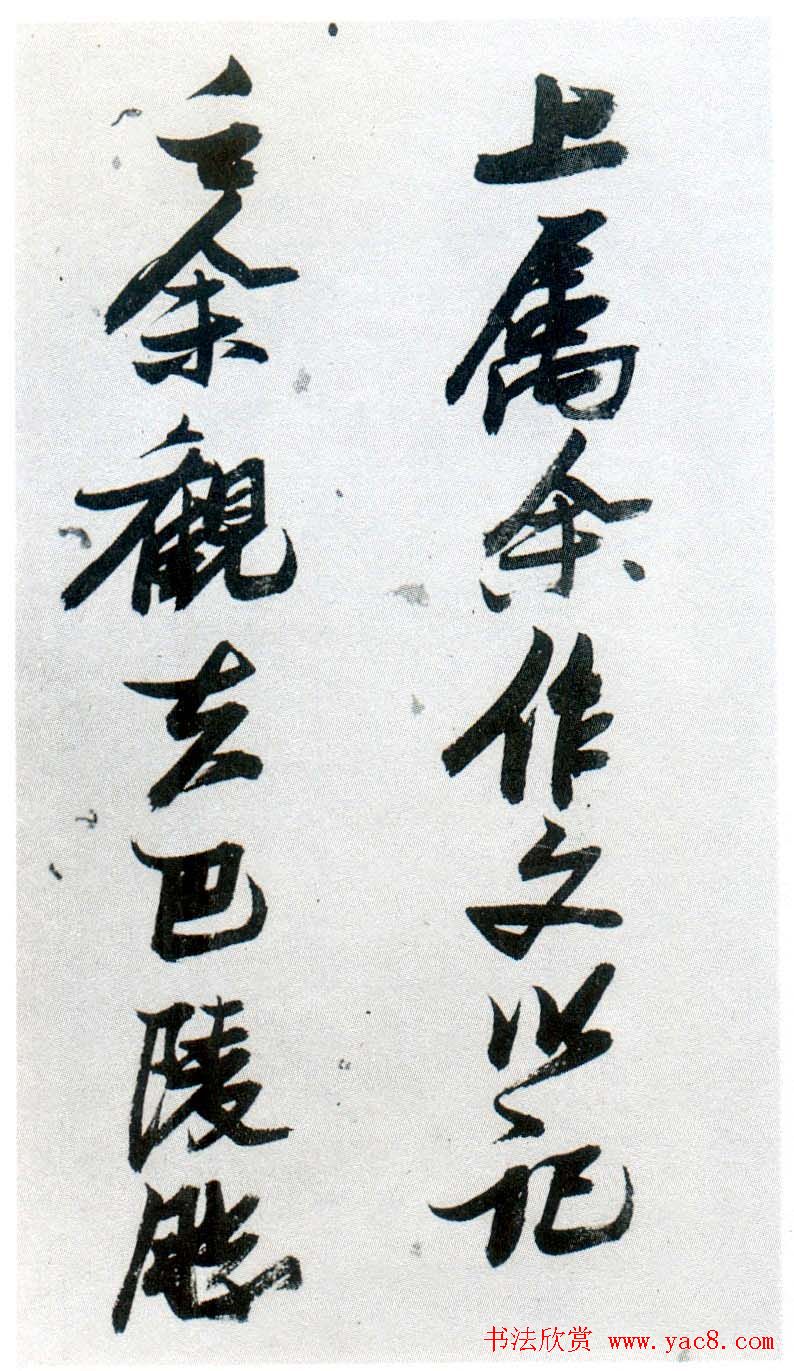 上属余作文以记
之余觀夫巴陵勝
书法欣赏 www.yac8.com